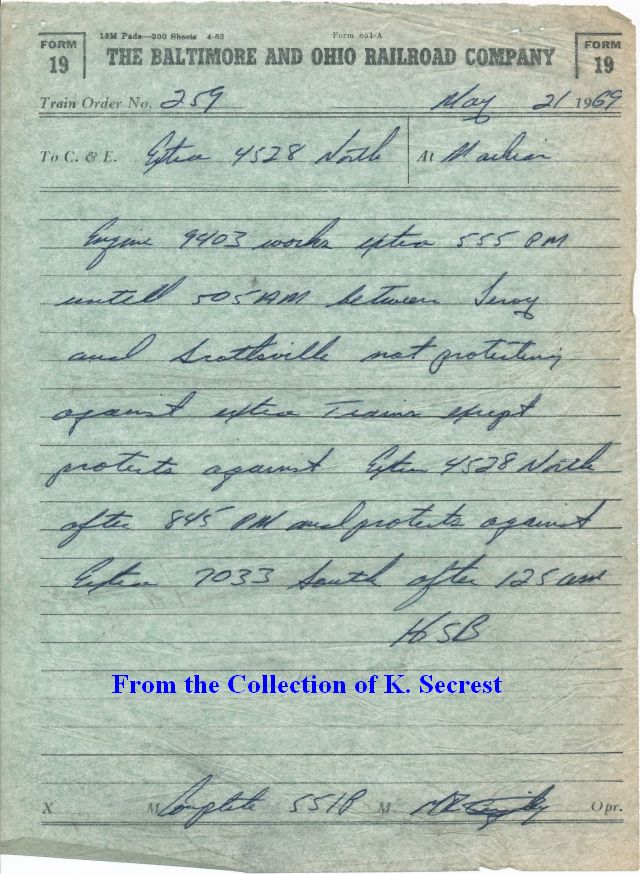 15M Pads—200 Sheets 4-63 Form 851-A
FORM 19
THE BALTIMORE AND OHIO RAILROAD COMPANY
FORM 19
Train Order No. 259 May 21 1969
To C. & E. Extra 4528 North At Machias
Engine 9403 works extra 555 PM
untell 505 AM between Leroy
and Scottsville not protecting
against extra Trains except
protects against Extra 4528 North
after 845 PM and protects against
Extra 7033 South after 125 am
HSB
From the Collection of K. Secrest
X M Complete 551P M Opr.